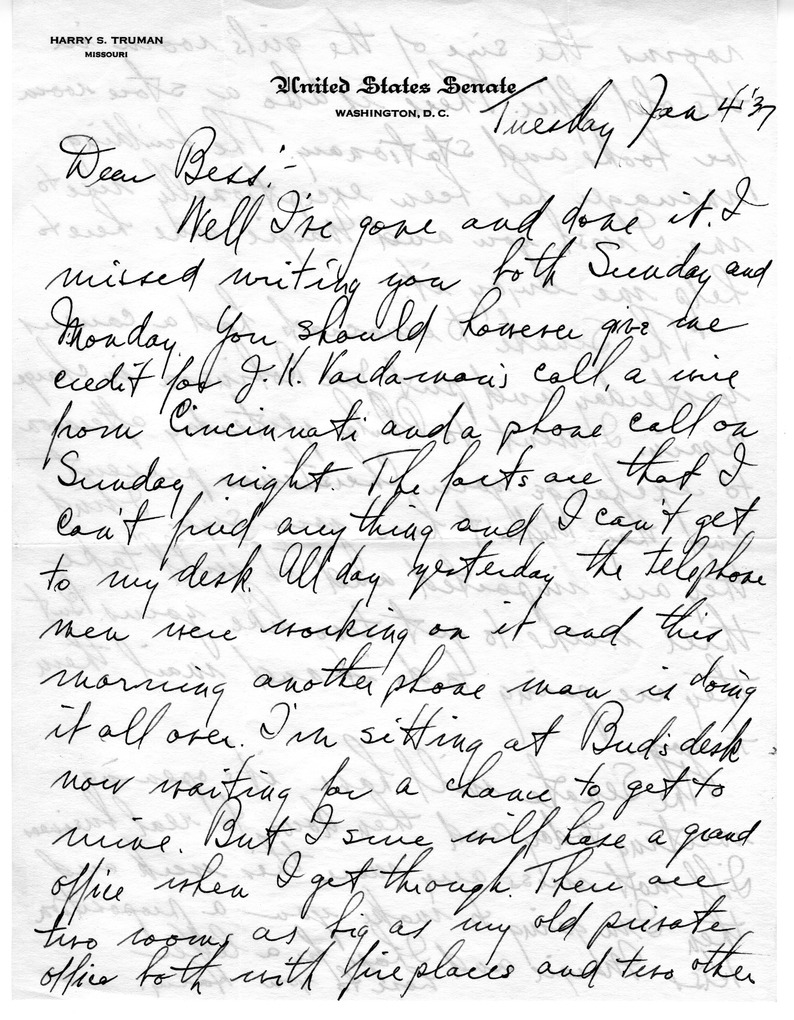 HARRY S. TRUMAN
MISSOURI
United States Senate
WASHINGTON, D. C.
Tuesday Jan 4 '37
Dear Bess:-
Well I've gone and done it. I
missed writing you both Sunday and
Monday. You should however give me
credit for J. K. Vardaman's call, a wire
from Cincinnati and a phone call on
Sunday night. The facts are that I
can't find anything and I can't get
to my desk. All day yesterday the telephone
men were working on it and this
morning another phone man is doing
it all over. I'm sitting at Bud's desk
now waiting for a chance to get to
mine. But I sure will have a grand
office when I get through. There are
two rooms as big as my old private
office both with fireplaces and two other